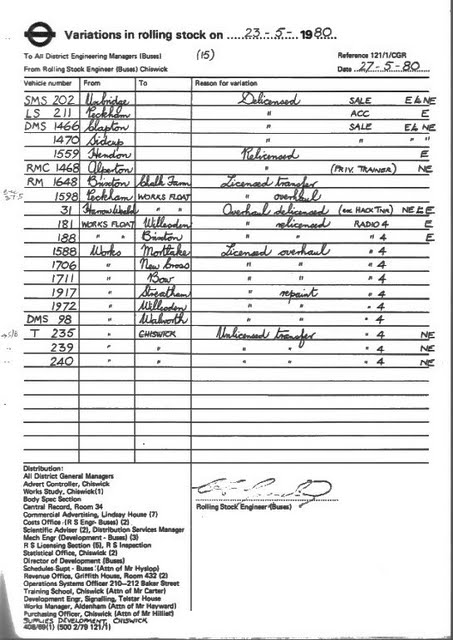 Variations in rolling stock on 23-5-1980
To All District Engineering Managers (Buses) (15) Reference 121/1/CGR
From Rolling Stock Engineer (Buses) Chiswick Date 27-5-80
Vehicle number From To Reason for variation
SMS 202 Uxbridge Delicensed SALE E & NE
LS 211 Peckham " ACC E
DMS 1466 Clapton " SALE E & NE
1470 Sidcup " " " "
1559 Hendon Relicensed E
RMC 1468 Alperton " (PRIV. TRAINER) NE
RM 1648 Brixton Chalk Farm Licensed transfer
1598 Peckham WORKS FLOAT " overhaul
31 Harrow Weald " Overhaul delicensed (ex HACK TNR) NE & E
181 WORKS FLOAT Willesden " relicensed RADIO 4 E
188 " " Brixton " " " 4 E
1588 Works Mortlake Licensed overhaul " 4
1706 " New Cross " " " 4
1711 " Bow " " " 4
1917 " Streatham " repaint " 4
1972 " Willesden " " " 4
DMS 98 " Walworth " " " 4
T 235 " CHISWICK Unlicensed transfer " 4 NE
239 " " " " " 4 NE
240 " " " " " 4 NE
Rolling Stock Engineer (Buses)
Distribution:
All District General Managers
Advert Controller, Chiswick
Works Study, Chiswick(1)
Body Spec Section
Central Record, Room 34
Commercial Advertising, Lindsay House (7)
Costs Office (R S Engr- Buses) (2)
Scientific Adviser (2), Distribution Services Manager
Mech Engr (Development - Buses) (3)
R S Licensing Section (5), R S Inspection
Statistical Office, Chiswick (2)
Director of Development (Buses)
Schedules Supt - Buses (Attn of Mr Hyslop)
Revenue Office, Griffith House, Room 432 (2)
Operations Systems Officer 210-212 Baker Street
Training School, Chiswick (Attn of Mr Carter)
Development Engr, Signalling, Telstar House
Works Manager, Aldenham (Attn of Mr Hayward)
Purchasing Officer, Chiswick (Attn of Mr Hilliet)
SUPPLIES DEVELOPMENT, CHISWICK
408/89(1) (500 2/79 121/1)